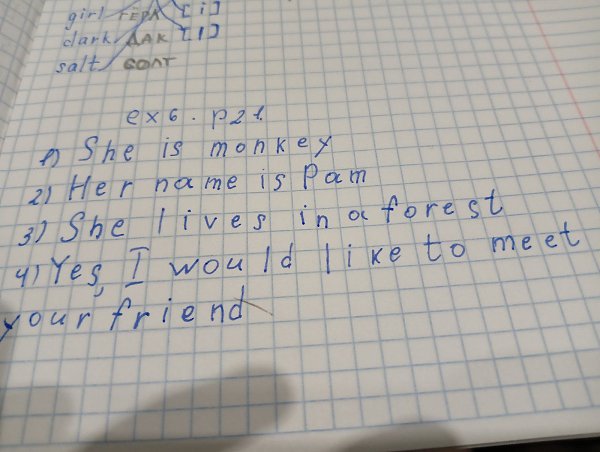 girl ГЁРЛ [i]
dark ДАК [l]
salt СОЛТ
ex 6. p21.
1) She is monkey
2) Her name is Pam
3) She lives in a forest
4) Yes, I would like to meet
your friend